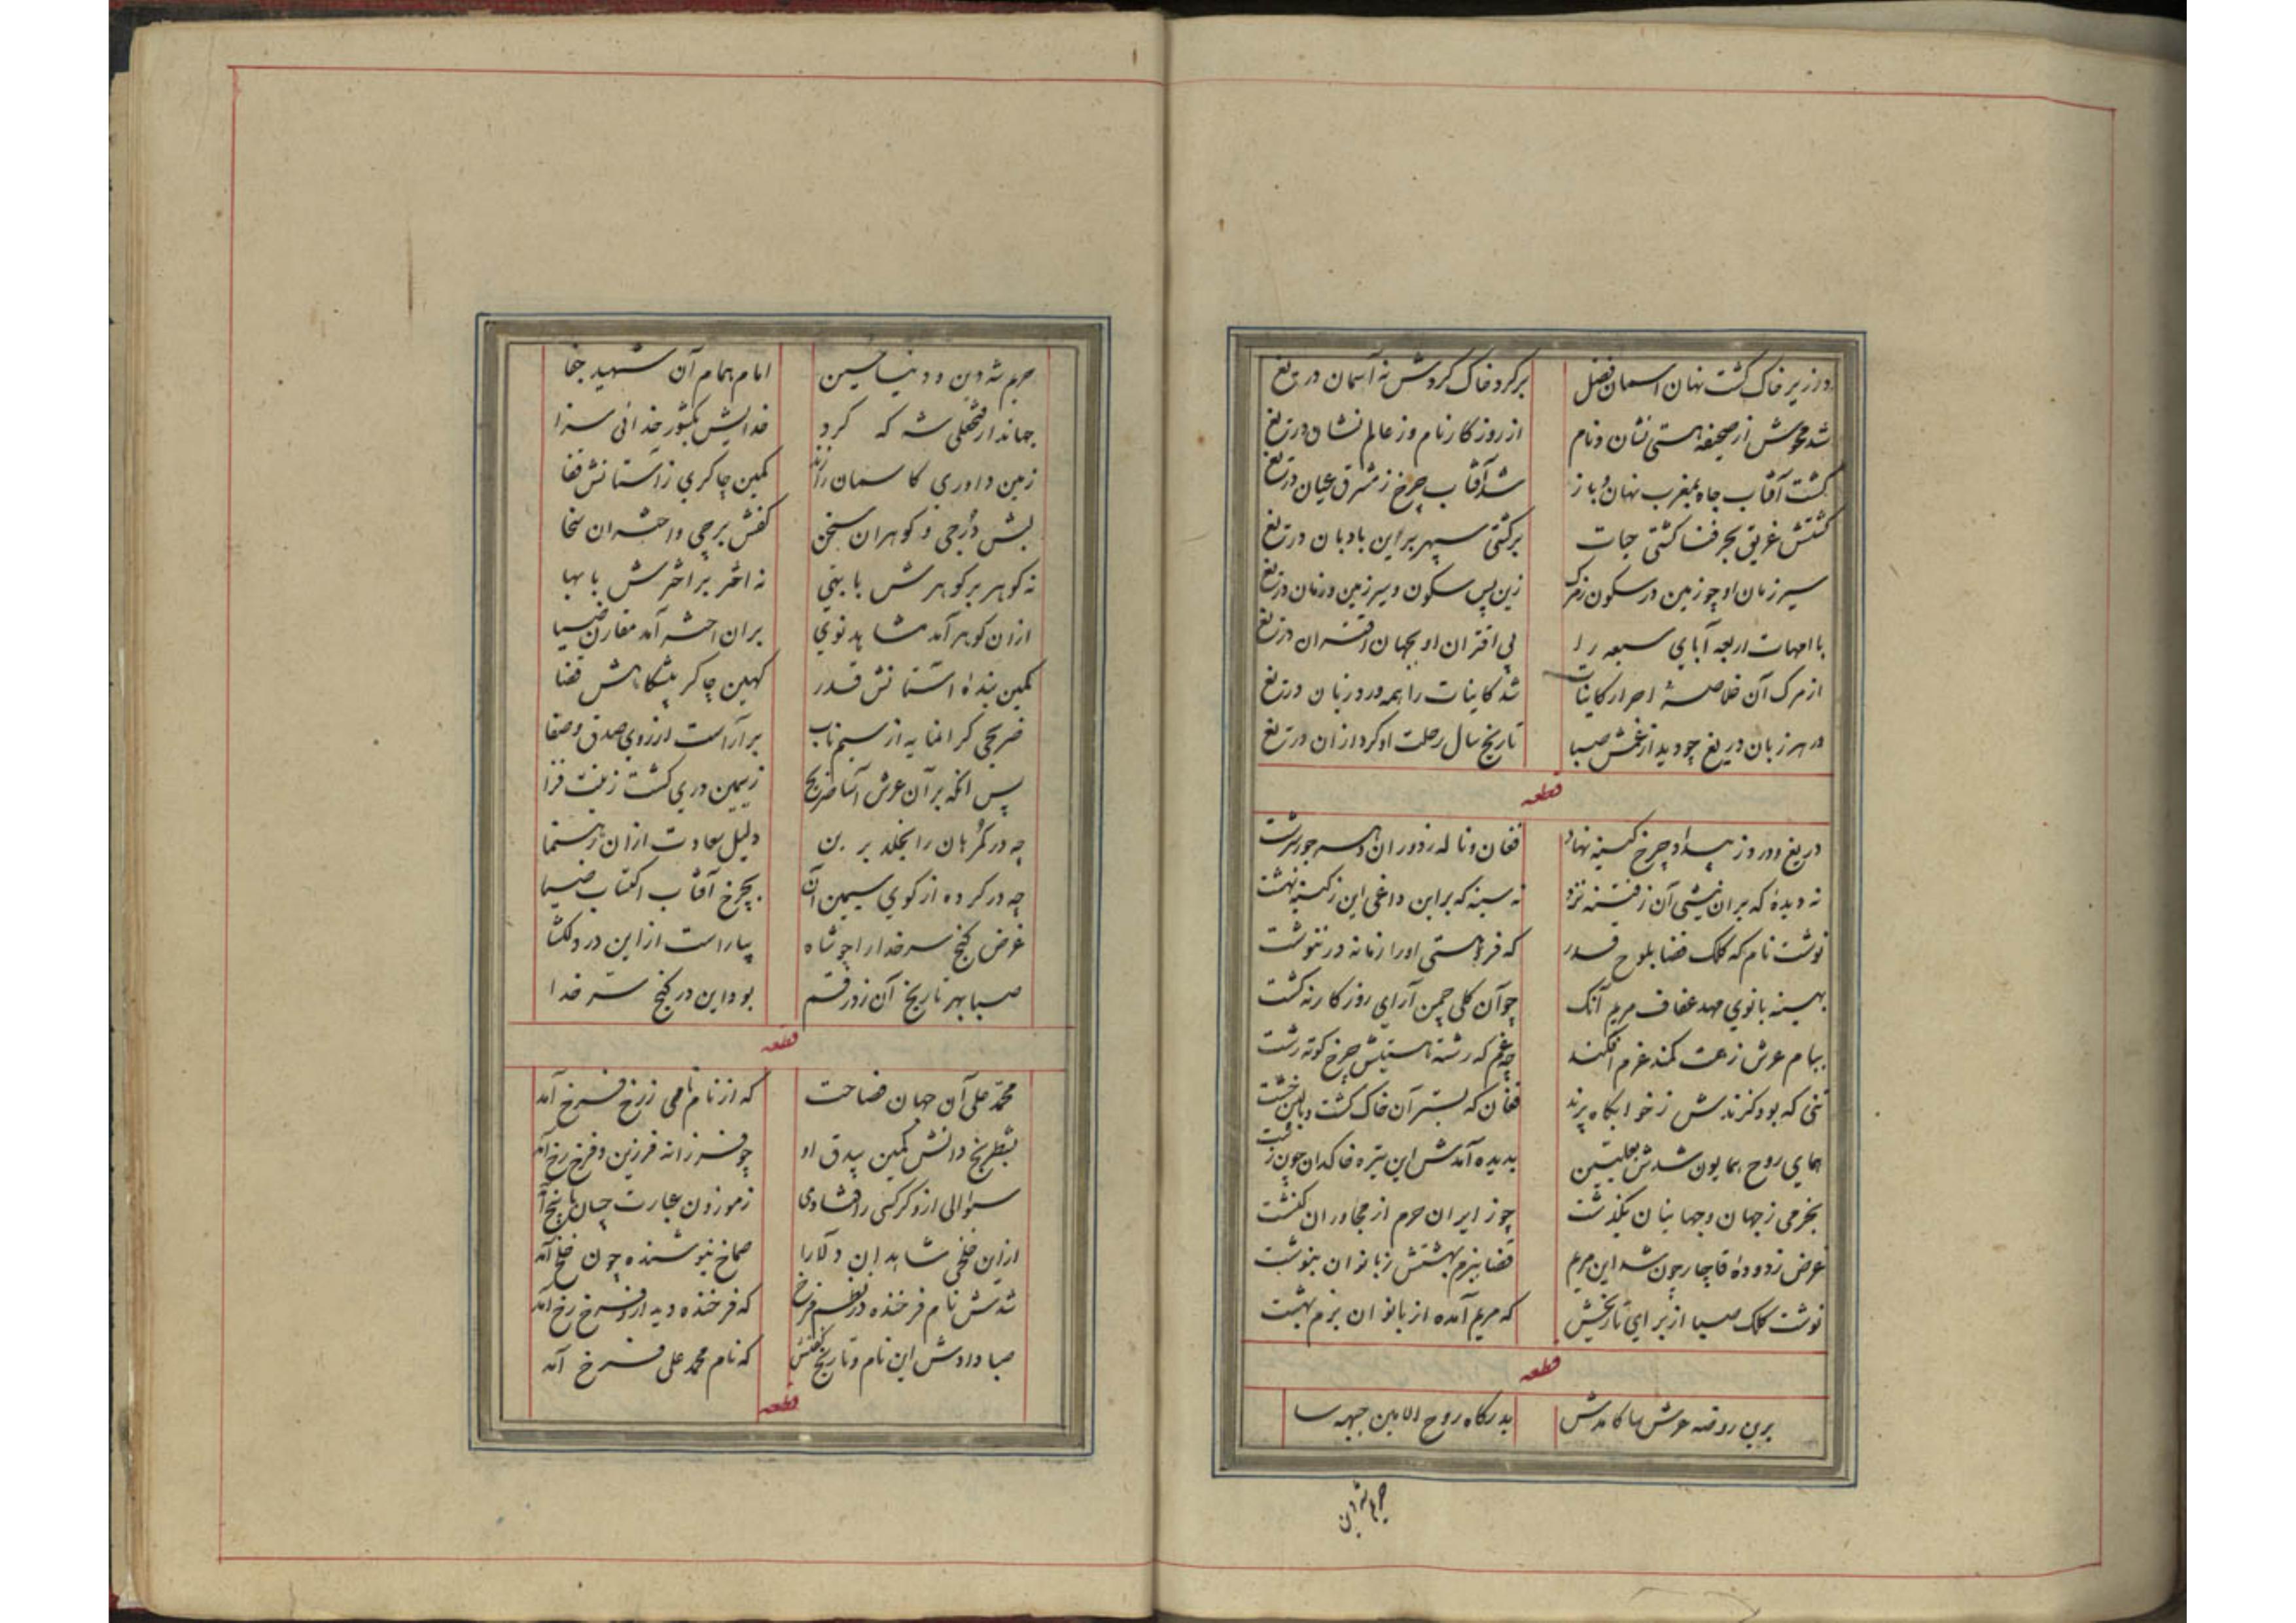 در زیر خاک گشت نهان آسمان فضل برگرد خاک گردش نه آسمان دریغ
شد محوش از صحیفه هستی نشان و نام از روزگار نام و ز عالم نشان دریغ
گشت آفتاب جاه بمغرب نهان و باز شد آفتاب چرخ ز مشرق عیان دریغ
گشتش غریق بحر فنا کشتی حیات برکشتی سپهر براین بادبان دریغ
سیر زمان او چو زمین در سکون ز مرک زین پس سکون و سیر زمین و زمان دریغ
با امهات اربعه آبای سبعه را بی اقتران او بجهان اقتران دریغ
از مرک آن خلاصهٔ احرار کاینات شد کاینات را همه ورد زبان دریغ
در هر زبان دریغ چو دید از غمش صبا تاریخ سال رحلت او کرد از ان دریغ
قطعه
دریغ و درد ز بیداد چرخ کینه نهاد فغان و ناله ز دوران دهر جور سرشت
نه دیدهٔ که بران نیشی آن ز فتنه نزد نه سینه که براین داغی این ز کینه نهشت
نوشت نام که کلک قضا بلوح قدر که فرد هستی او را زمانه در ننوشت
بهینه بانوی مهد عفاف مریم آنک چو آن کلی چمن آرای روزگار نه کشت
ببام عرش ز عفت کمند عزم افکند چه غم که رشته هستیش چرخ کوته رشت
تنی که بود گزندش ز خوابکاه پرند فغان که بستر آن خاک کشت و بالین خشت
همای روح همایون شدش بعلیین بدیده آمدش این تیره خاکدان چون زشت
بخرمی ز جهان و جهانیان بگذشت چو زایران حرم از مجاوران کنشت
غرض ز دودهٔ قاجار چون شد این مریم قضا ببزم بهشتش ز بانوان بنوشت
نوشت کلک صبا از برای تاریخش که مریم آمده از بانوان بزم بهشت
قطعه
برین روضه عرش سا کامدش بدرگاه روح الامین جبهه سا
حریم شه دین
حریم شه دین و دنیا حسین امام همام آن شهید جفا
جهاندار فتحعلی شه که کرد خدایش بکشور خدائی سزا
زمین داوری کاسمان راز ند کمین چاکری ز آستانش قفا
لبش درجی و کوهران سخن کفش برجی و اختران سخا
نه کوهر بر کوهرش با بهی نه اختر بر اخترش با بها
ازان کوهر آمد مشاهد نوی بران اختر آمد مقارن ضیا
کمین بندهٔ آستانش قدر کهین چاکر پیشگاهش قضا
ضریحی کرانمایه از سیم ناب برآراست از روی صدق و صفا
پس انکه بر آن عرش آسا ضریح ز سیمین دری کشت زینت فزا
چه در گمرهان را بخلد برین دلیل سعادت ازان رهنما
چه در کرده از کوی سیمین آن بچرخ آفتاب اکتساب ضیا
غرض گنج سر خدا را چو شاه بیاراست از این در دلکشا
صبا بهر تاریخ آن زد رقم بود این در گنج سر خدا
قطعه
محمد علی آن جهان فصاحت که از نام نامی ز رخ فرخ آمد
بشطرنج دانش کمین بیدق او چو فرزانه فرزین و فرخ رخ آمد
سوالی ازو کر کسی را فتادی ز موزون عبارت چسان پاسخ آمد
ازین خلخی شاهدان دلارا صماخ نیوشنده چون خلخ آمد
شدش نام فرخنده در نظم فرخ که فرخنده دیدار و فرخ رخ آمد
صبا دادش این نام و تاریخ گفتش که نام محمد علی فرخ آمد
قطعه